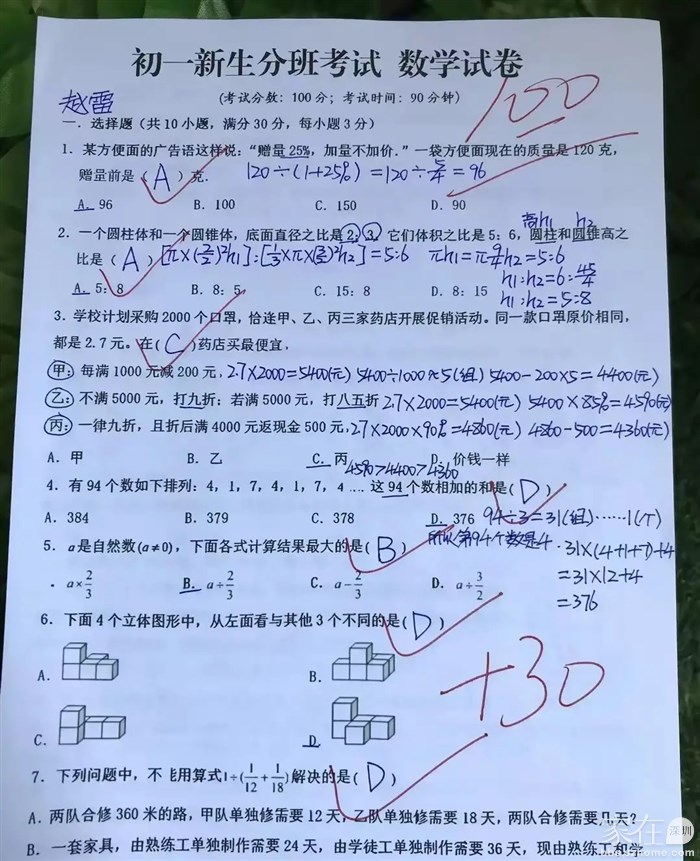 初一新生分班考试 数学试卷
(考试分数：100分；考试时间：90分钟)
100
赵雷
一．选择题（共10小题，满分30分，每小题3分）
1．某方便面的广告语这样说：“赠量25%，加量不加价．”一袋方便面现在的质量是120克，
赠量前是（ A ）克． 120÷(1+25%)=120÷5/4=96
A．96 B．100 C．150 D．90
2．一个圆柱体和一个圆锥体，底面直径之比是2：3，它们体积之比是5：6，圆柱和圆锥高之
高h1 h2
比是（ A ）[π×(2/2)²h1]:[1/3×π×(3/2)²h2]=5:6 πh1=π9/4h2=5:6
A．5：8 B．8：5 C．15：8 D．8：15
h1:h2=6:45/4
h1:h2=5:8
3．学校计划采购2000个口罩，恰逢甲、乙、丙三家药店开展促销活动。同一款口罩原价相同，
都是2.7元。在( C )药店买最便宜，
甲：每满1000元减200元， 2.7×2000=5400(元) 5400÷1000≈5(组) 5400-200×5=4400(元)
乙：不满5000元，打九折；若满5000元，打八五折 2.7×2000=5400(元) 5400×85%=4590(元)
丙：一律九折，且折后满4000元返现金500元， 2.7×2000×90%=4860(元) 4860-500=4360(元)
A．甲 B．乙 C．丙 D．价钱一样
4590>4400>4360
4．有94个数如下排列：4，1，7，4，1，7，4 ….这94个数相加的和是( D )
A．384 B．379 C．378 D．376 94÷3=31(组)……1(个)
所以第94个数是4
31×(4+1+7)+4
=31×12+4
=376
5．a是自然数(a≠0)，下面各式计算结果最大的是( B )
. a×2/3 B．a÷2/3 C．a-2/3 D．a÷3/2
6．下面4个立体图形中，从左面看与其他3个不同的是( D )
A． B．
C． D
+30
7．下列问题中，不能用算式1÷(1/12+1/18)解决的是( D )
A．两队合修360米的路，甲队单独修需要12天，乙队单独修需要18天，两队合修需要几天？
B．一套家具，由熟练工单独制作需要24天，由学徒工单独制作需要36天，现由熟练工和学
家在深圳